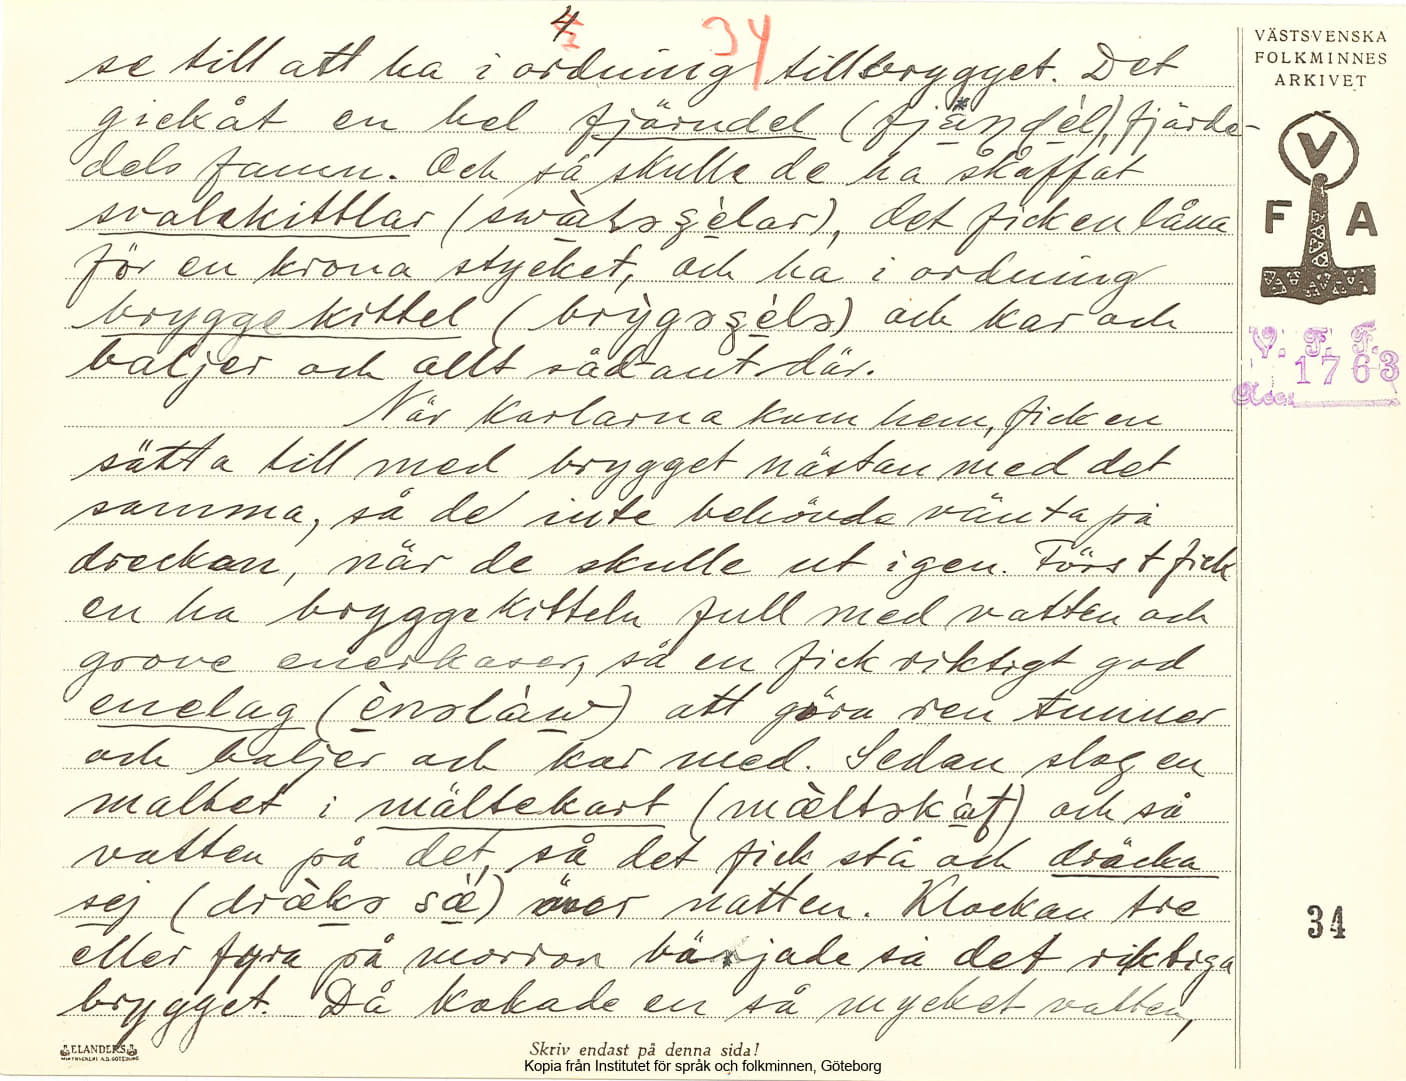 4
34
se till att ha i ordning till brygget. Det
gick åt en hel fjärndel (fjän̥dél), fjärde-
dels famn. Och så skulle de ha skaffat
svalekittlar (swàləʂèlar), det fick en låna
för en krona stycket, och ha i ordning
bryggekittel (brỳgəʂélə) och kar och
baljer och allt sådant där.
När karlarna kom hem, fick en
sätta till med brygget nästan med det
samma, så de inte behövde vänta på
drickan, när de skulle ut igen. Först fick
en ha bryggekitteln full med vatten och
grove enerkaser, så en fick riktigt god
enelag (ènəláw) att göra ren tunner
och baljer och kar med. Sedan slog en
maltet i mältekart (mæ̀ltəkát) och så
vatten på det, så det fick stå och dräcka
sej (dræ̀kə sǽ) över natten. Klockan tre
eller fyra på morron bärjade så det riktiga
brygget. Då kokade en så mycket vatten,
VÄSTSVENSKA
FOLKMINNES
ARKIVET
V
F A
V. F. F.
1763
Acc.
34
ELANDERS
Skriv endast på denna sida!
Kopia från Institutet för språk och folkminnen, Göteborg